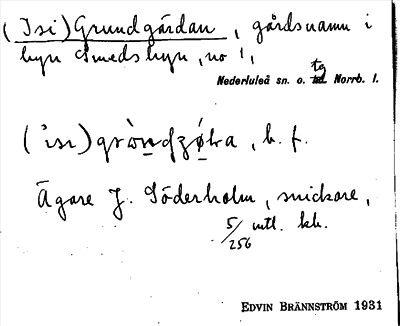 (Isi) Grundgårdan, gårdsnamn i
byn Smedsbyn, no 1,
tg
Nederluleå sn. o. Norrb. l.
b. f.
Ägare J. Söderholm, snickare,
5/256 mtl. kb.
EDVIN BRÄNNSTRÖM 1931